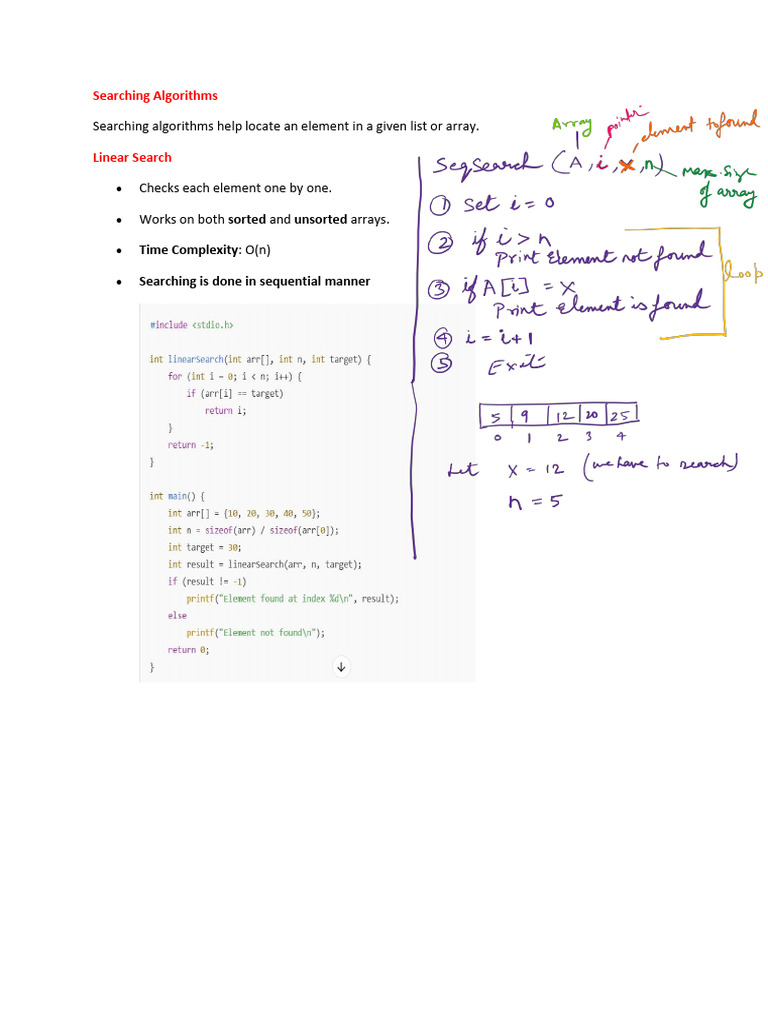 Searching Algorithms
Searching algorithms help locate an element in a given list or array.
Linear Search
• Checks each element one by one.
• Works on both sorted and unsorted arrays.
• Time Complexity: O(n)
• Searching is done in sequential manner
#include <stdio.h>
int linearSearch(int arr[], int n, int target) {
for (int i = 0; i < n; i++) {
if (arr[i] == target)
return i;
}
return -1;
}
int main() {
int arr[] = {10, 20, 30, 40, 50};
int n = sizeof(arr) / sizeof(arr[0]);
int target = 30;
int result = linearSearch(arr, n, target);
if (result != -1)
printf("Element found at index %d\n", result);
else
printf("Element not found\n");
return 0;
}
Array pointer element to found
SeqSearch (A, i, x, n) max. size
of array
① Set i = 0
② if i > n
Print Element not found
loop
③ if A[i] = x
Print Element is found
④ i = i+1
⑤ Exit
5 9 12 20 25
0 1 2 3 4
Let x = 12 (we have to search)
n = 5